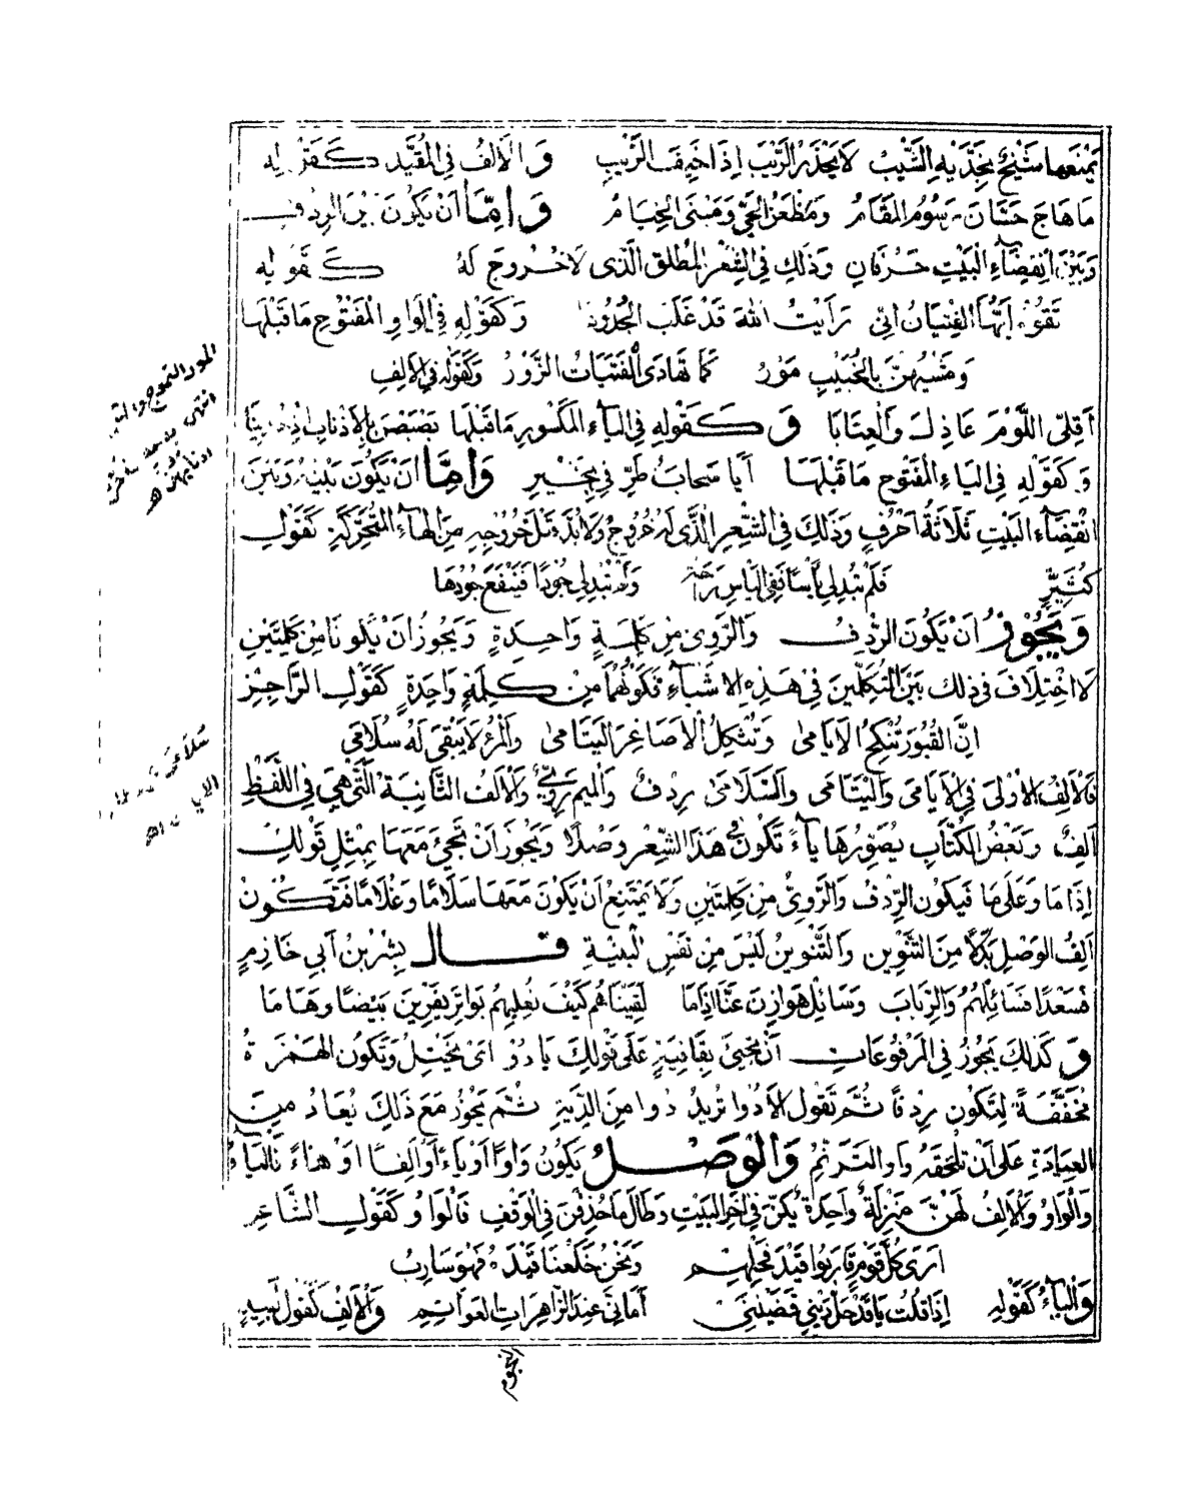 يَمْنَعها شَيْخٌ بخَدَّيْهِ الشَّيْبُ لا يَحْذَرُ الرَّيْبَ إذَا خِيفَ الرَّيْبِ وَالْألفُ فِي المُقَيَّد كَقَوْلِهِ
مَا هَاجَ حَسَّانَ رُسُومُ المَقَامُ وَمَظْعَنُ الحَيِّ وَمَبْنَى الخِيَامُ وَإِمَّا أنْ يَكُونَ بَيْنَ الرِّدْفِ
وَبَيْنَ انْقِضَآءِ البَيْتِ حَرْفَانِ وَذَلِكَ فِي الشِّعْرِ المُطْلَقِ الَّذِى لَا خُرُوجَ لَهُ كَقَوْلِهِ
تَقُوهُ أيُّهَا الفِتْيَانُ انِّى رَأَيْتُ اللهَ قَدْ غَلَبَ الجُدُودَا وَكَقَوْلِهِ فِي الوَاوِ المَفْتُوحِ مَا قَبْلَهَا
وَمَشْيُهُنَّ بِالخُبَيْبِ مَوْرُ كَمَا تَهَادَى الفَتَيَاتُ الزَّوْرُ وَكَقَوْلِهِ فِي الْألِفِ
أَقِلِّى اللَّوْمَ عَاذِلَ وَالْعِتَابَا وَكَقَوْلِهِ فِي اليَآءِ المَكْسُورِ مَا قَبْلَهَا بَصْبَصْنَ بِالْأَذْنَابِ
وَكَقَوْلِهِ فِي اليَاءِ المَفْتُوحِ مَا قَبْلَهَا أَيَا سَحَابُ طَرِّقِي بِخَيْرِ وَإِمَّا أنْ يَكُونَ بَيْنَهُ وَبَيْنَ
انْقِضَآءِ البَيْتِ ثَلَاثَةُ أحْرُفٍ وَذَلِكَ فِي الشِّعْرِ الَّذِى لَهُ خُرُوجٌ وَلَا بُدَّ قَبْلَ خُرُوجِهِ مِنَ الهَآءِ المُتَحَرِّكَةِ كَقَوْلِ
كُثَيِّرٍ فَلَمْ تُبْدِ لِي يَأْسًا فَفِي اليَاسِ رَاحَةٌ وَلَمْ تُبْدِ لِي جُودًا فَيَنْفَعَ جُودُهَا
وَيَجُوزُ أنْ يَكُونَ الرِّدْفُ وَالرَّوِى مِن كَلِمَةٍ وَاحِدَةٍ وَيَجُوزُ انْ يَكُونَا مِنْ كَلِمَتَيْنِ
لَا اخْتِلَافَ فى ذلِكَ بَيْنَ المُتَكَلِّمِينَ فِي هَذِهِ الْأشْيَآءِ فَكَوْنُهُمَا مِنْ كَلِمَةٍ وَاحِدَةٍ كَقَوْلِ الرَّاجِزِ
اِنَّ القُبُورَ تُنْكِحُ الْأيَامى وَتُثْكِلُ الْأصَاغِرَ اليَتَامى وَالمَرْءُ لَا يَبْقَى لَهُ سُلَامَى
فَالْألِفُ الْأوْلَى فِي الْأيَامَى وَاليَتَامَى وَالسَّلَامَى رِدْفٌ وَالميمُ رَوِىٌّ وَالْألفُ الثَّانِيَةُ الَّتِى هِيَ فِي اللَّفْظِ
ألِفٌ وَبَعْضُ الكُتَّابِ يُصَوِّرُهَا يَآءً تَكُونُ فِي هَذَا الشِّعْرِ وَصْلًا وَيَجُوزُ انْ تَجِيْ مَعَهَا بِمِثْلِ قَوْلِكَ
إذَا مَا وَعَلَى مَا فَيَكُونُ الرِّدْفُ وَالرَّوِىُّ مِنْ كَلِمَتَيْنِ وَلَا يَمْتَنِعُ انْ يَكُونَ مَعَهَا سَلَامًا وَغُلَامًا فَتَكُونُ
ألِفُ الوَصْلِ بَدَلًا مِنَ التَّنْوِينِ وَالتَّنْوِينُ لَيْسَ مِن نَفْسِ البْنْيَةِ قَالَ بِشْرُ بنُ أبي خَازِمٍ
فَسَعْدًا فَسَائِلْهُمْ وَالرِّبَابَ وَسَائِلْ هَوَازِنَ عَنَّا إذَامَا لَقِينَاهُم كَيْفَ نُعْلِيهِمُ بَوَاتِرَ يَفْرِينَ بَيْضًا وَهَامَا
وَكَذلكَ يَجُوزُ فِي المَرْفُوعَاتِ أنْ يَجِيْءَ بِقَافِيَةٍ عَلَى قَوْلِكَ يَادُوْ اىْ يَخْتِلُ وَتَكُونُ الهَمْزَةُ
مُخَفَّفَةً لِتَكُونَ رِدْفًا ثُمَّ تَقُولُ الْأدُوا تُرِيْدُ دُوا مِنَ الدِّيَةِ ثُمَّ يَجُوْزُ مَعَ ذَلِكَ يُعَادُ مِنَ
العِيَادَةِ عَلَى أنْ تَلْحَقَهُ وَاو التَّرَنُّمِ وَالْوَصْلُ يَكُونُ وَاوًا أوْ يَاءً أَوْ ألِفًا اوْ هَاءً فَاليَآءُ
وَالْوَاوُ وَالْألِفُ لَهُنَّ مَنْزِلَةٌ وَاحِدَةٌ يَكُنَّ فِي آخِرِ البَيْتِ وَطَالَمَا حُذِفْنَ فِي الوَقْفِ فَالْوَاوُ كَقَوْلِ الشَّاعِرِ
ارَى كُلَّ قَوْمٍ قَارَبُوا قَيْدَ فَحْلِهِمْ وَنَحْنُ خَلَعْنَا قَيْدَهُ فَهْوَ سَارِبُ
وَاليَآءُ كَقَوْلِهِ إذَا قُلْتُ يَا قَدْ حَلَّ دَيْنِي قَضَيْنَنِي أمَانِيَّ عِنْدَ الزَّاهِرَاتِ العَوَاتِمِ وَالْألِفُ كَقَوْلِ لَبِيدٍ